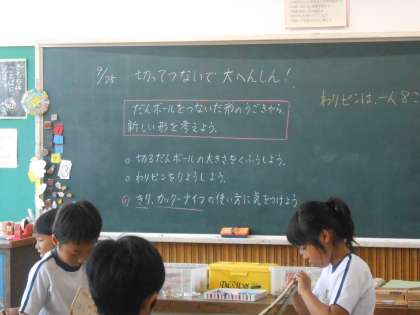 9/25 切ってつないで 大へんしん!
だんボールをつないだ形のうごきから、
新しい形を考えよう。
わりピンは、一人8こ
○ 切るだんボールの大きさをくふうしよう。
○ わりピンをりようしよう。
きり、カッターナイフの使い方に気をつけよう。